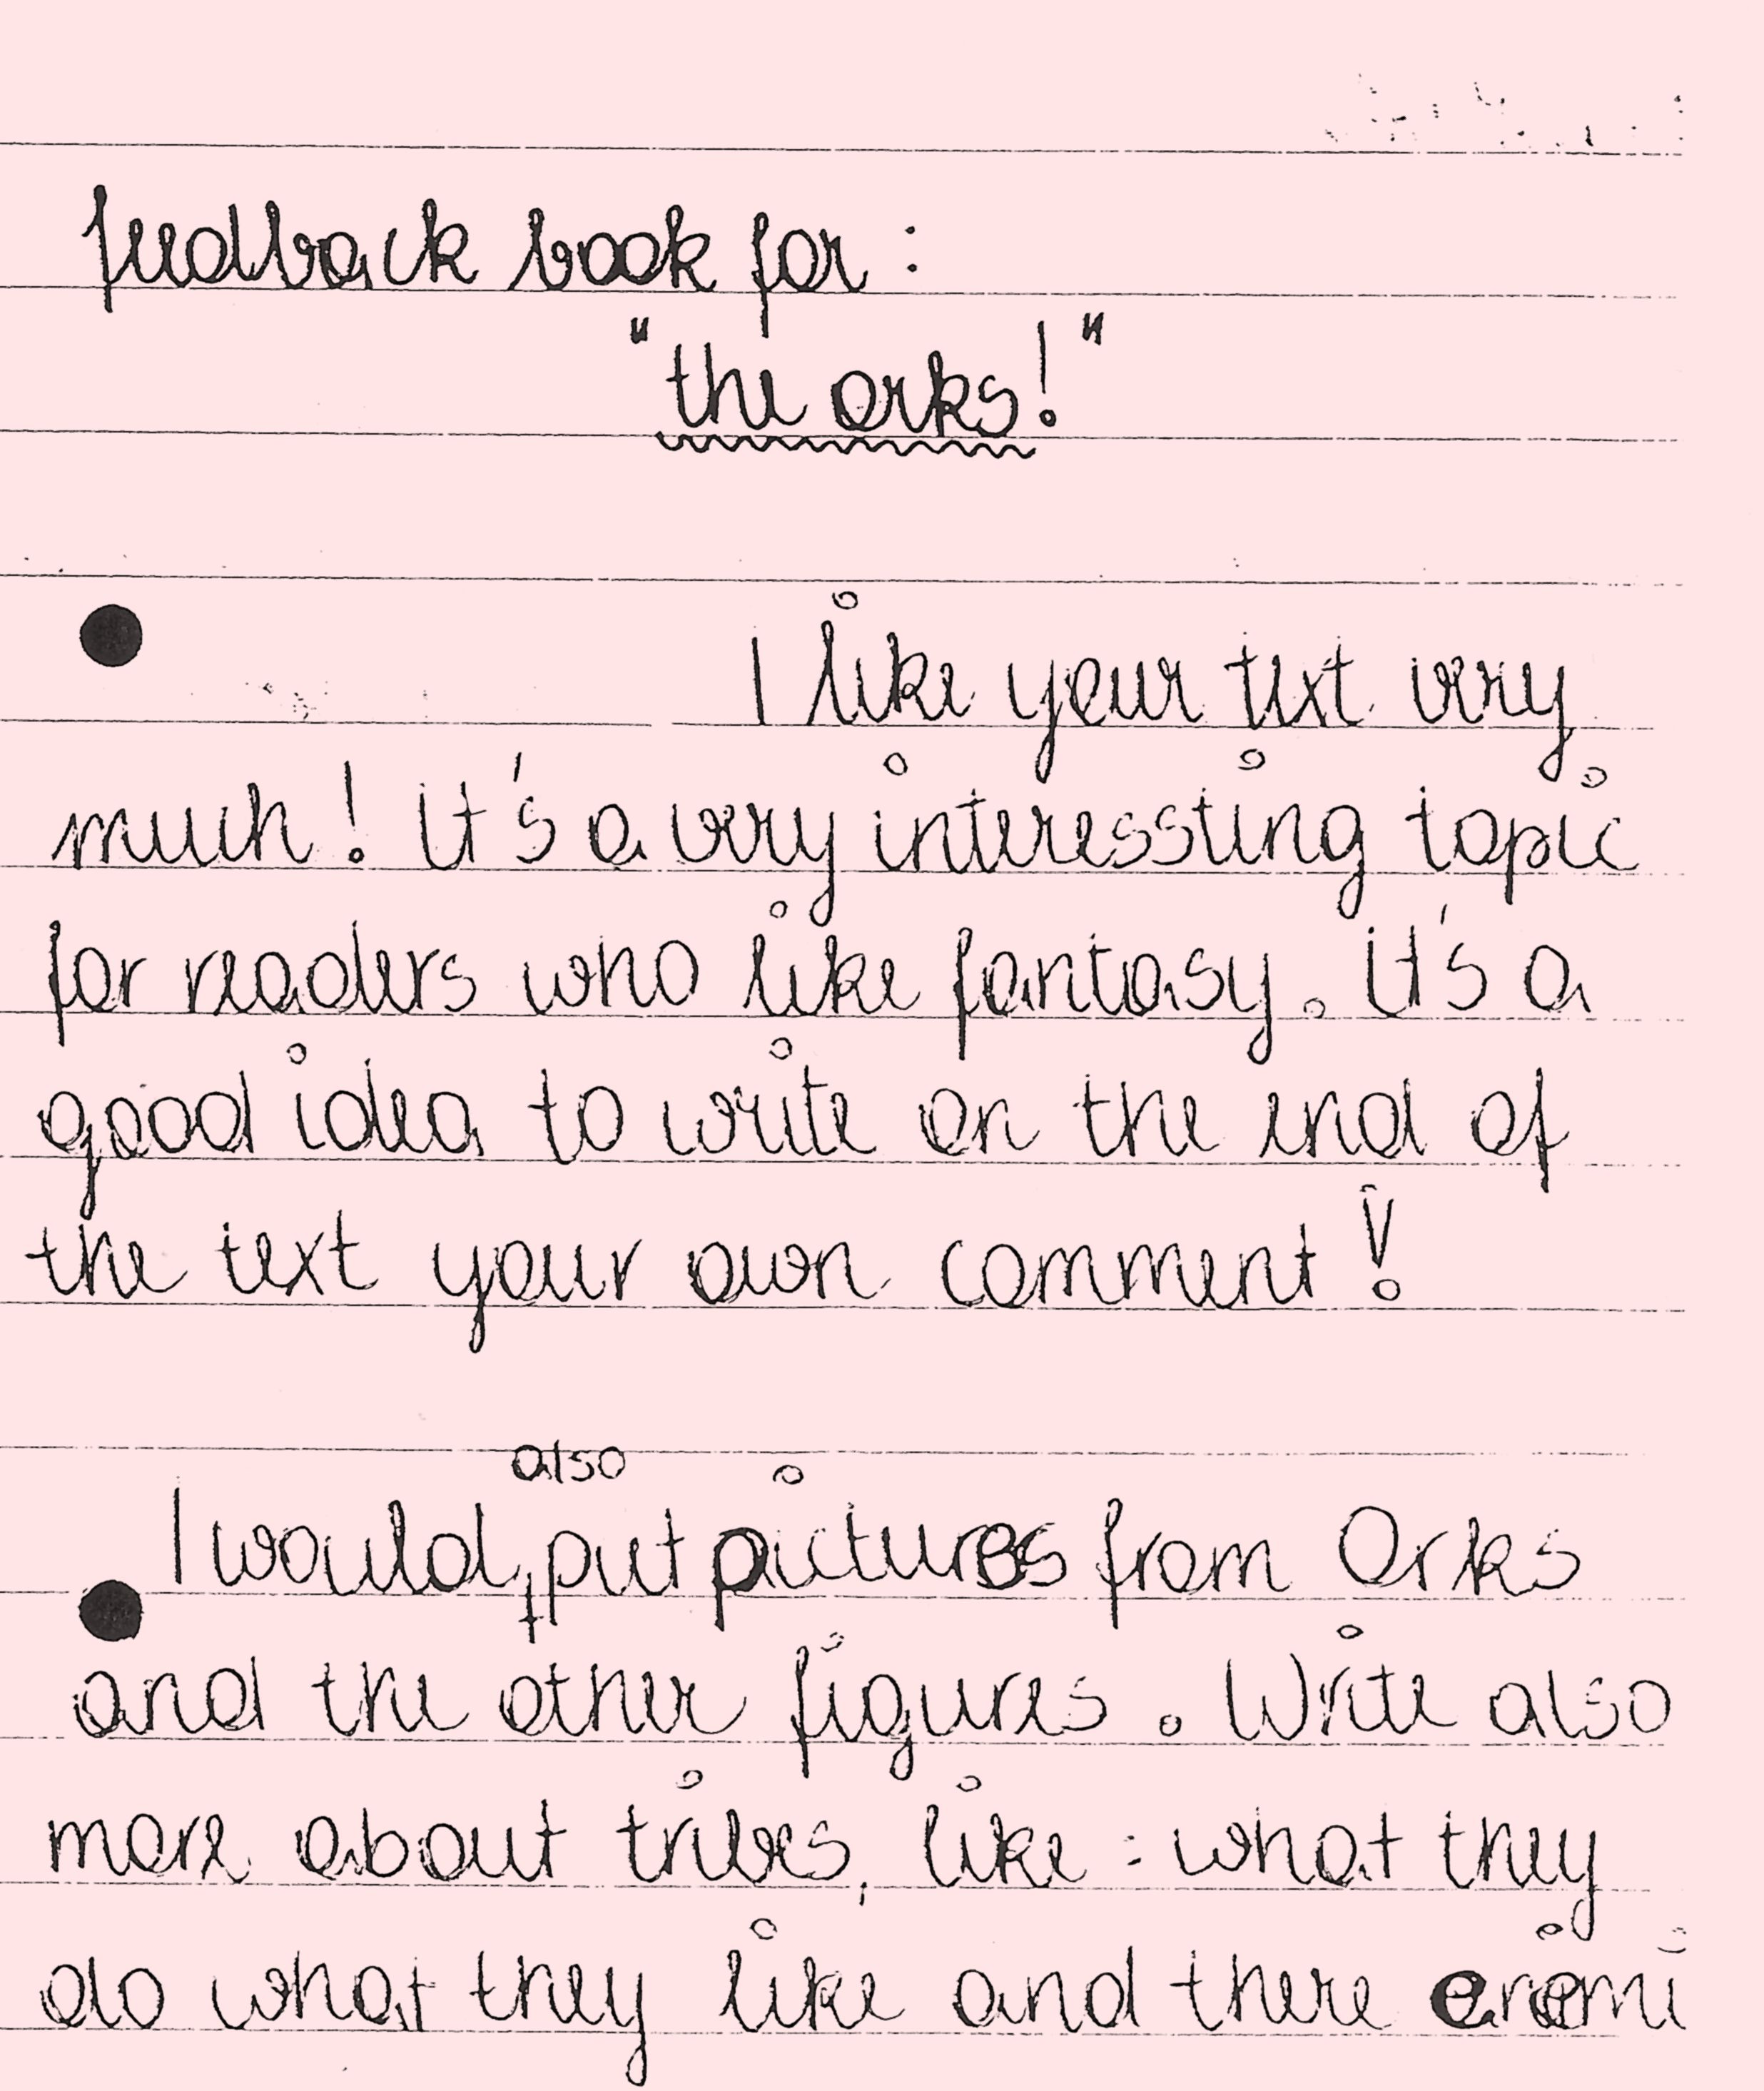 feedback book for :
"the orks!"
I like your text very
much! it's a very interessting topic
for readers who like fantasy. it's a
good idea to write on the end of
the text your own comment!
also
I would put pictures from Orks
and the other figures. Write also
more about tribes, like : what they
do what they like and there enemi